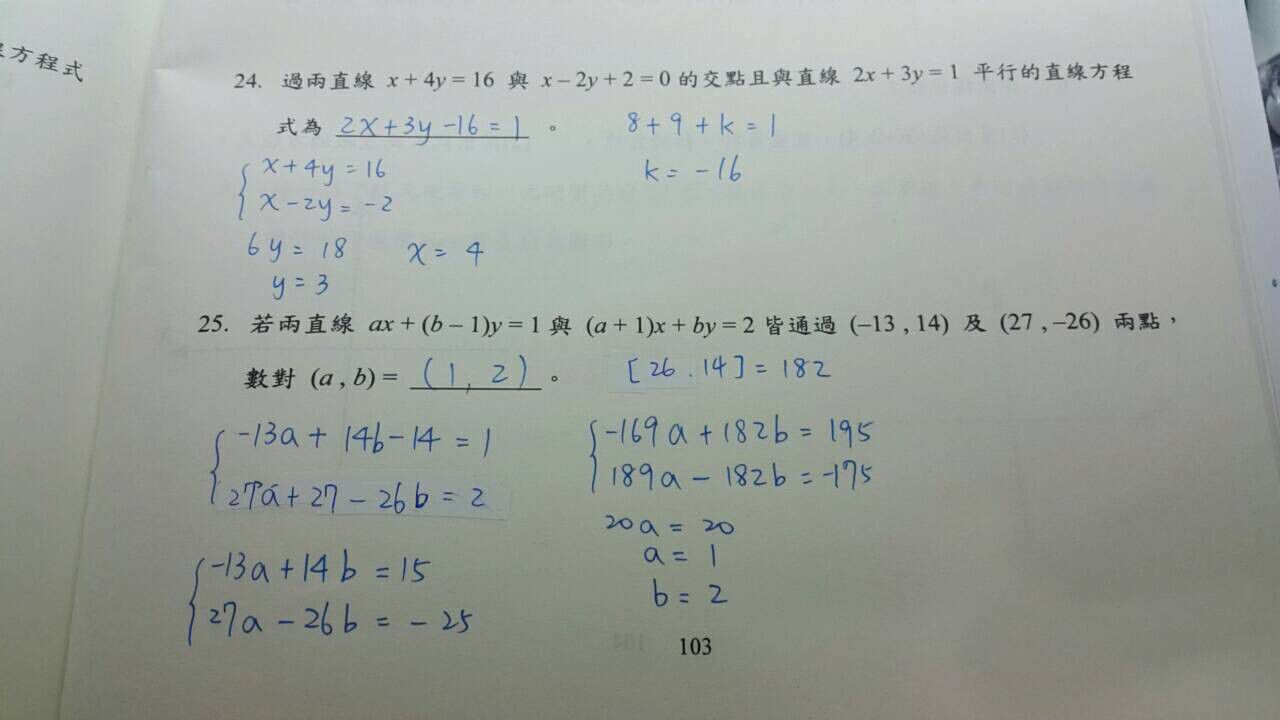 線方程式
24. 過兩直線 x + 4y = 16 與 x – 2y + 2 = 0 的交點且與直線 2x + 3y = 1 平行的直線方程
式為 2x+3y-16=1 。 8+9+k=1
x+4y=16 k=-16
x-2y=-2
6y=18 x=4
y=3
25. 若兩直線 ax + (b – 1)y = 1 與 (a + 1)x + by = 2 皆通過 (–13 , 14) 及 (27 , –26) 兩點，
數對 (a , b) = (1, 2) 。 [26.14]=182
-13a+14b-14=1 -169a+182b=195
27a+27-26b=2 189a-182b=-175
20a=20
-13a+14b=15 a=1
27a-26b=-25 b=2
103